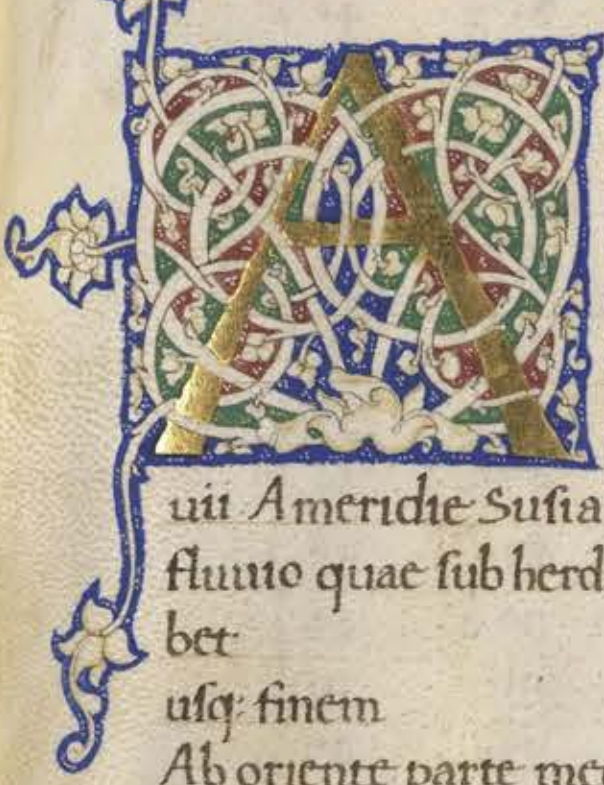 A
uii Ameridie Susia
fluuio quae sub herd
bet
usq: finem
Ab oriente parte me